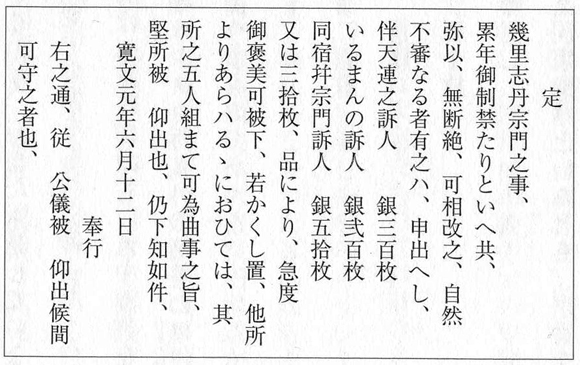 定
幾里志丹宗門之事、
累年御制禁たりといへ共、
弥以、無断絶、可相改之、自然
不審なる者有之ハ、申出へし、
伴天連之訴人　銀三百枚
いるまんの訴人　銀弐百枚
同宿幷宗門訴人　銀五拾枚
又は三拾枚、品により、急度
御褒美可被下、若かくし置、他所
よりあらハるゝにおひては、其
所之五人組まて可為曲事之旨、
堅所被　仰出也、仍下知如件、
寛文元年六月十二日
奉行
右之通、従　公儀被　仰出候間
可守之者也、